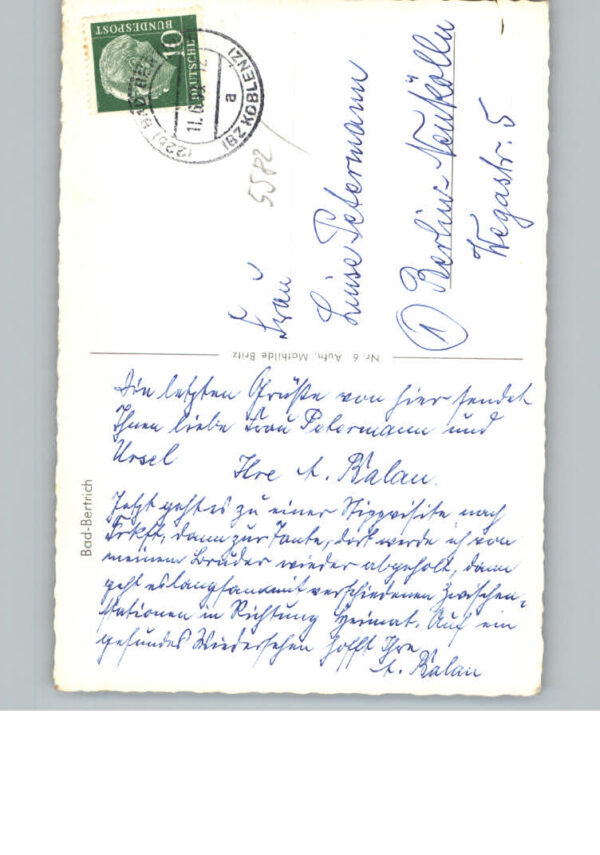 DEUTSCHE
BUNDESPOST
10
(22b) BAD BERTRICH
(BZ KOBLENZ)
11.6.
a
5582
Frau
Luise Petermann
(1) Berlin-Neukölln
Wegastr. 5
Nr. 6 Aufn. Mathilde Britz
Bad-Bertrich
Die letzten Grüße von hier sendet
Ihnen liebe Frau Petermann und
Ursel Ihre A. Kalau.
Jetzt geht es zu einer Stippvisite nach
Frkft, dann zur Tante, dort werde ich von
meinem Bruder wieder abgeholt, dann
geht es langsam mit verschiedenen Zwischen-
stationen in Richtung Heimat. Auf ein
gesundes Wiedersehen hofft Ihre
A. Kalau